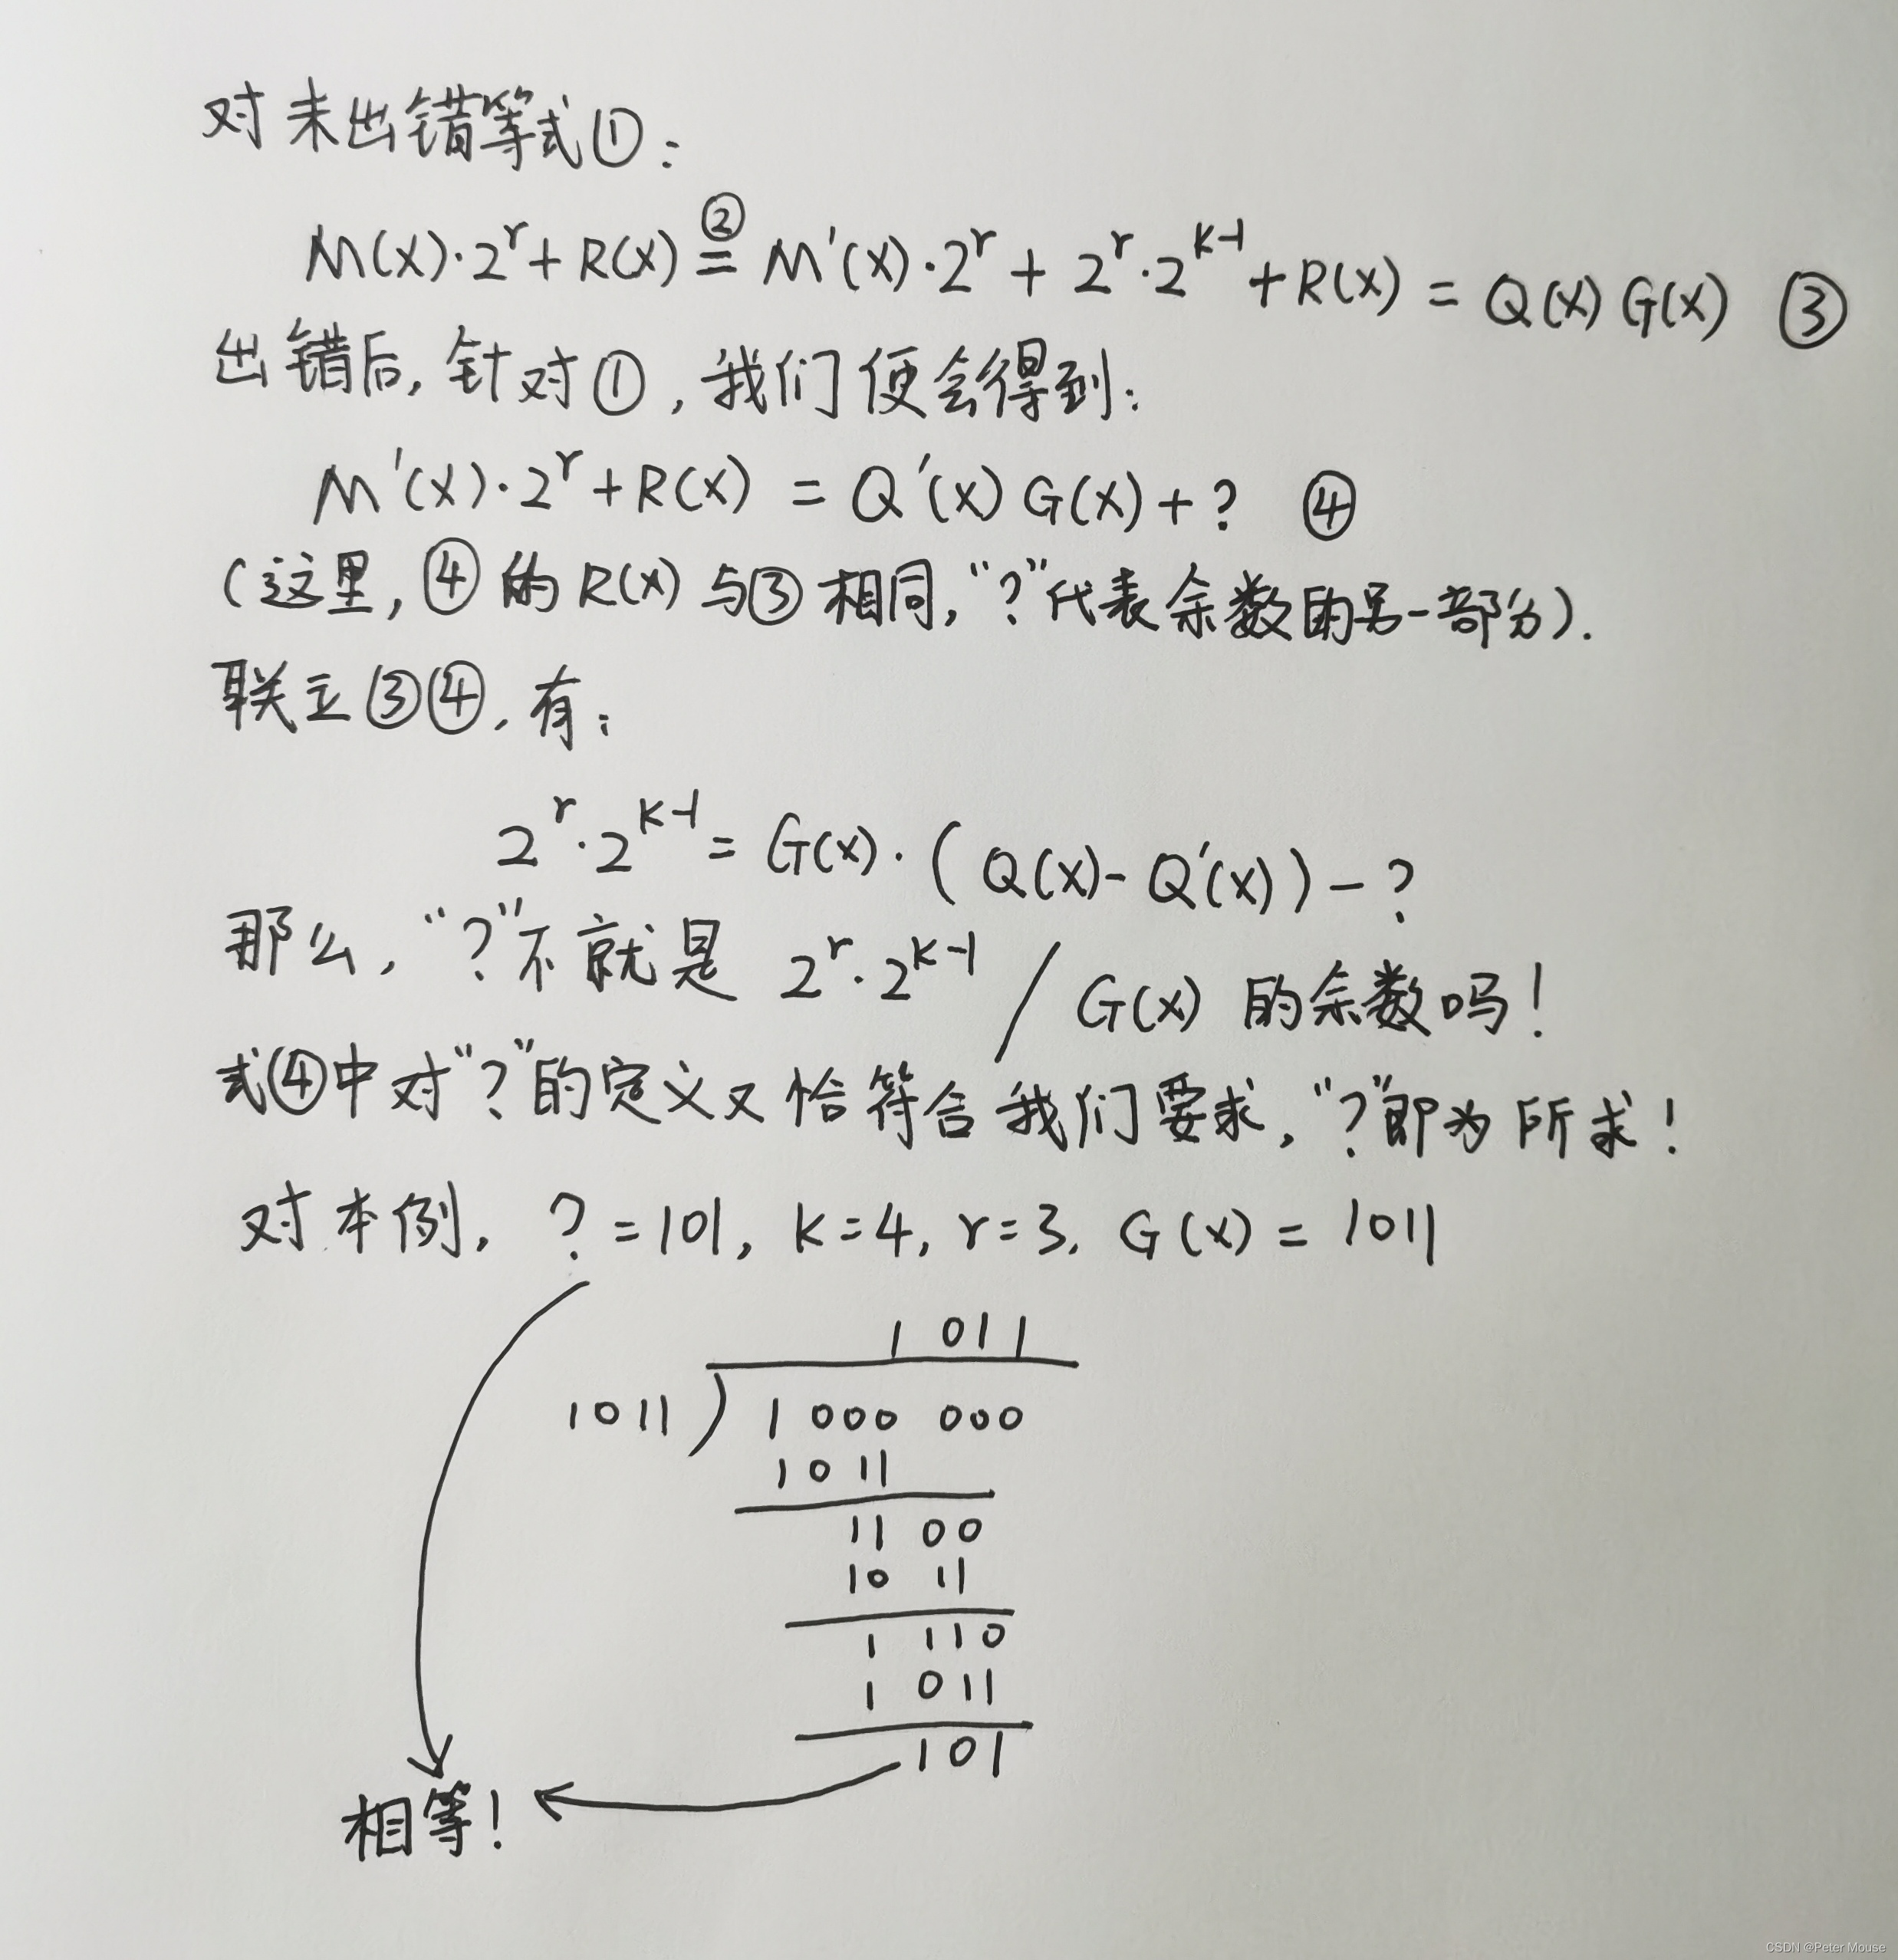 对未出错等式①:
M(X)·2^r+R(X) ②= M'(X)·2^r + 2^r·2^(k-1) +R(X) = Q(X)G(X) ③
出错后, 针对①, 我们便会得到:
M'(X)·2^r+R(X) = Q'(X)G(X)+? ④
(这里,④的R(X)与③相同,“?”代表余数的另一部分).
联立③④, 有:
2^r·2^(k-1) = G(X)·(Q(X)-Q'(X))-?
那么, “?”不就是 2^r·2^(k-1) / G(X) 的余数吗!
式④中对“?”的定义又恰符合我们要求, “?”即为所求!
对本例, ?=101, k=4, r=3, G(X)=1011
1 011
1011 ) 1 000 000
1 0 11
11 00
10 11
1 110
1 011
101
相等!
CSDN @Peter Mouse